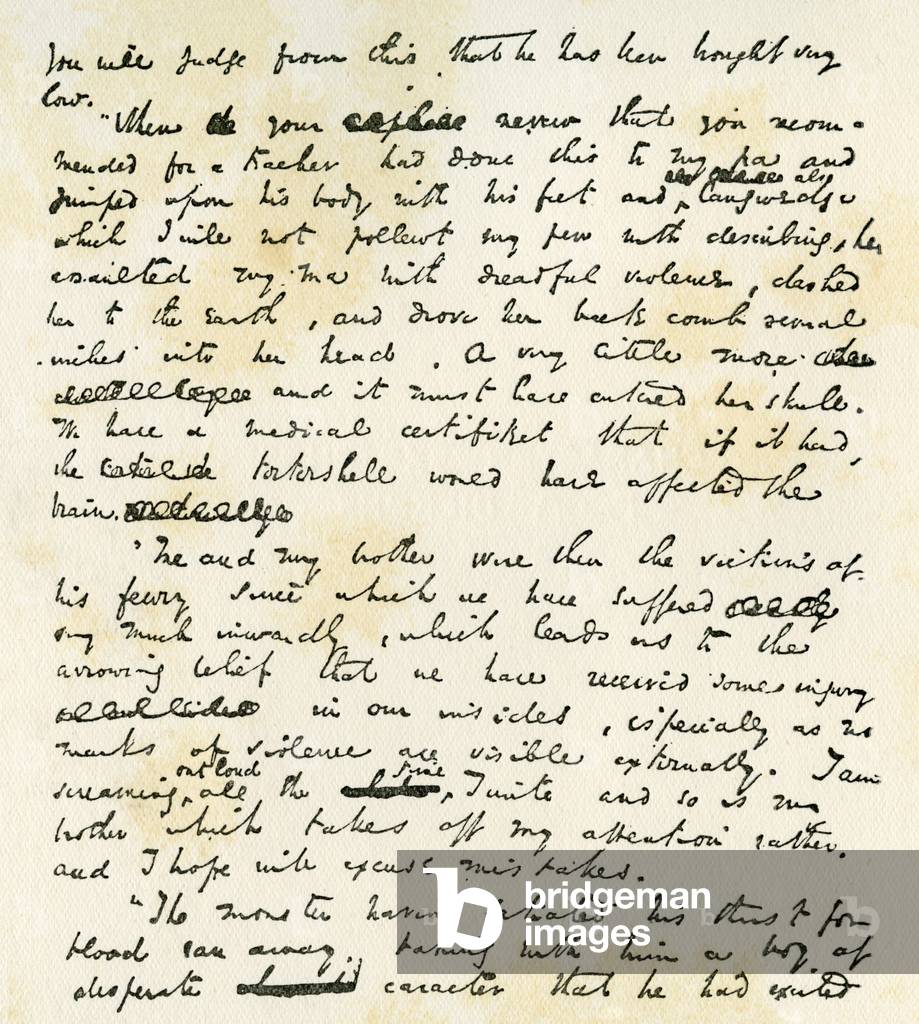 You will judge from this that he has been brought very
low.
"When your nevew that you recom-
mended for a teacher had done this to my pa and
jumped upon his body with his feet and also
langwedge
which I will not pollewt my pen with describing, he
assailted my ma with dreadful violence, dashed
her to the earth, and drove her back comb several
inches into her head. A very little more
and it must have entered her skull.
We have a medical certifiket that if it had,
the tortershell would have affected the
brain.
"Me and my brother were then the victims of
his feury since which we have suffered
very much inwardly, which leads us to the
arrowing belief that we have received some injury
in our insides, especially as no
marks of violence are visible externally. I am
screaming out loud all the time I write and so is my
brother which takes off my attention rather,
and I hope will excuse mistakes.
"The monster having his thirst for
blood ran away, taking with him a boy of
desperate caracter that he had excited
bridgeman
images